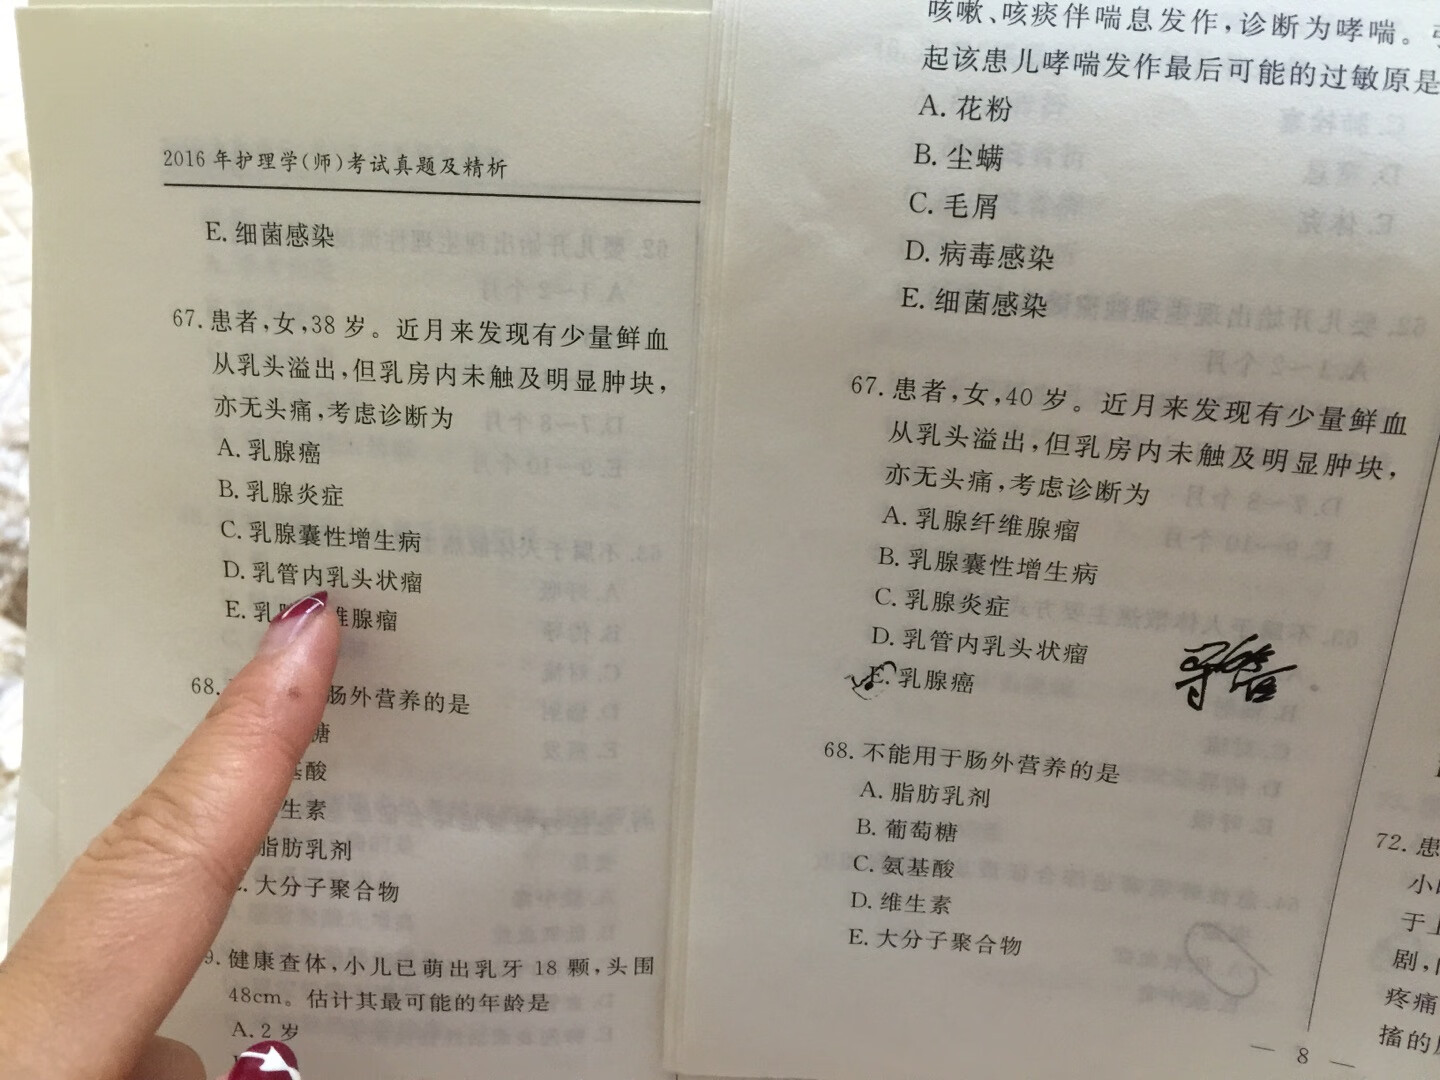 2016年护理学(师)考试真题及精析
E. 细菌感染
67. 患者,女,38岁。近月来发现有少量鲜血
从乳头溢出,但乳房内未触及明显肿块,
亦无头痛,考虑诊断为
A. 乳腺癌
B. 乳腺炎症
C. 乳腺囊性增生病
D. 乳管内乳头状瘤
E. 乳 维腺瘤
68. 肠外营养的是
糖
基酸
生素
脂肪乳剂
大分子聚合物
9. 健康查体,小儿已萌出乳牙18颗,头围
48cm。估计其最可能的年龄是
A. 2岁
咳嗽、咳痰伴喘息发作,诊断为哮喘。
起该患儿哮喘发作最后可能的过敏原是
A. 花粉
B. 尘螨
C. 毛屑
D. 病毒感染
E. 细菌感染
67. 患者,女,40岁。近月来发现有少量鲜血
从乳头溢出,但乳房内未触及明显肿块,
亦无头痛,考虑诊断为
A. 乳腺纤维腺瘤
B. 乳腺囊性增生病
C. 乳腺炎症
D. 乳管内乳头状瘤
E. 乳腺癌
68. 不能用于肠外营养的是
A. 脂肪乳剂
B. 葡萄糖
C. 氨基酸
D. 维生素
E. 大分子聚合物
— 8 —
72. 患
小
于
剧,
疼痛
搐的